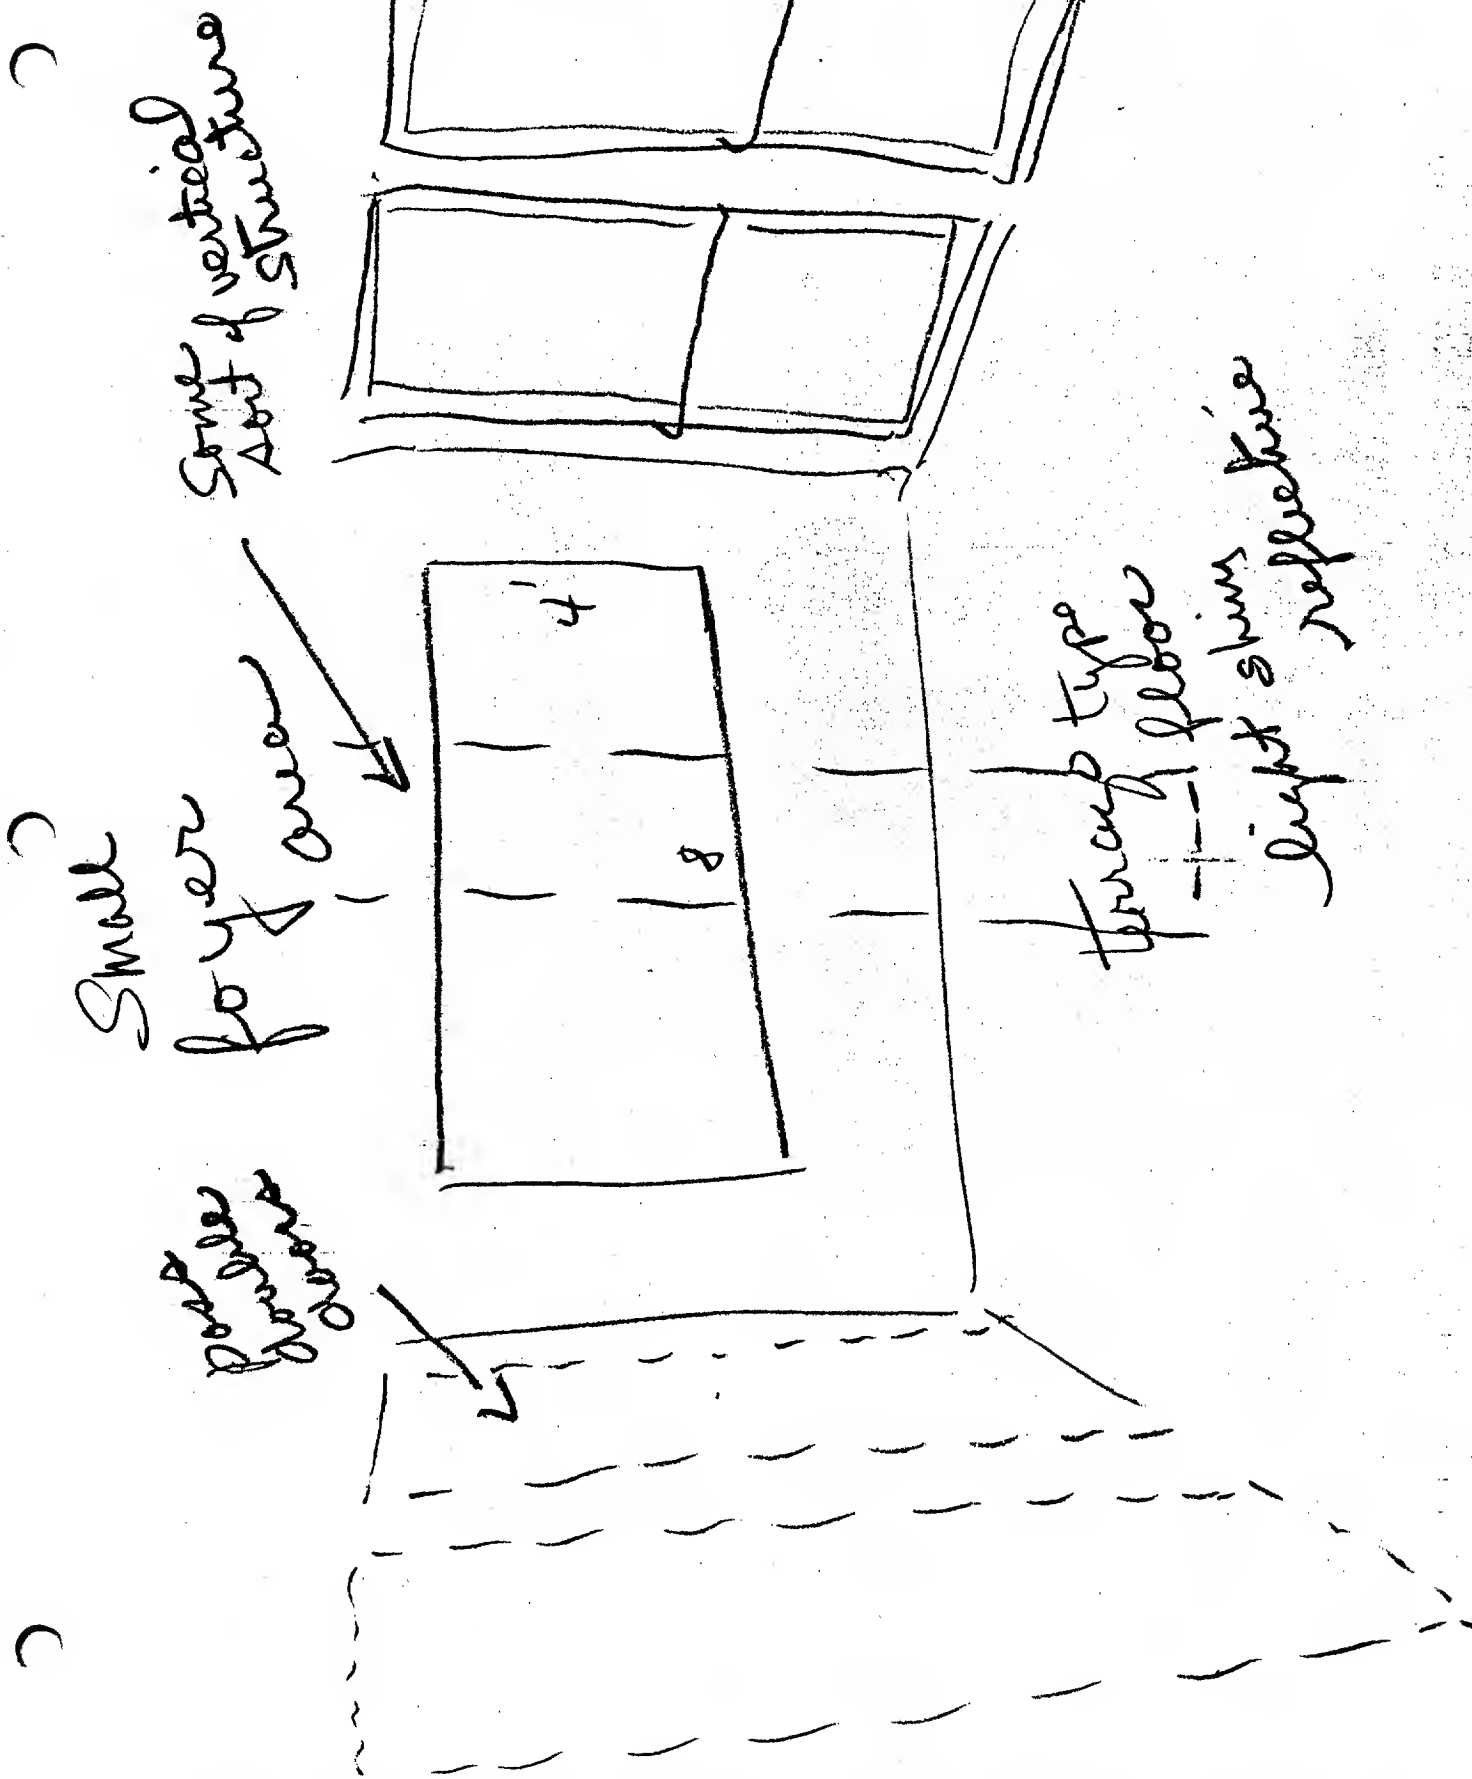 Poss
double
doors
Small
foyer
area
Some
sort of vertical
structure
4'
8
terrazo type
floor
light shiny
reflective